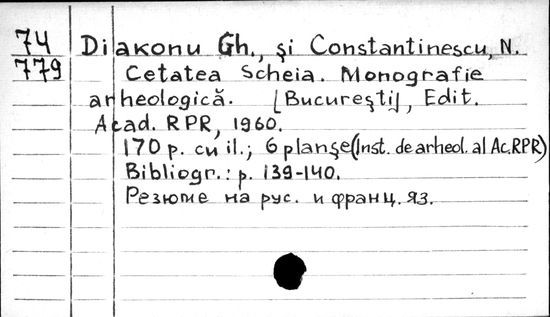 74 Diakonu Gh., şi Constantinescu, N.
779 Cetatea Scheia. Monografie
arheologică. [Bucureşti], Edit.
Acad. RPR, 1960.
170 p. cu il.; 6 planşe (Inst. de arheol. al Ac. RPR)
Bibliogr.: p. 139-140.
Резюме на рус. и франц. яз.